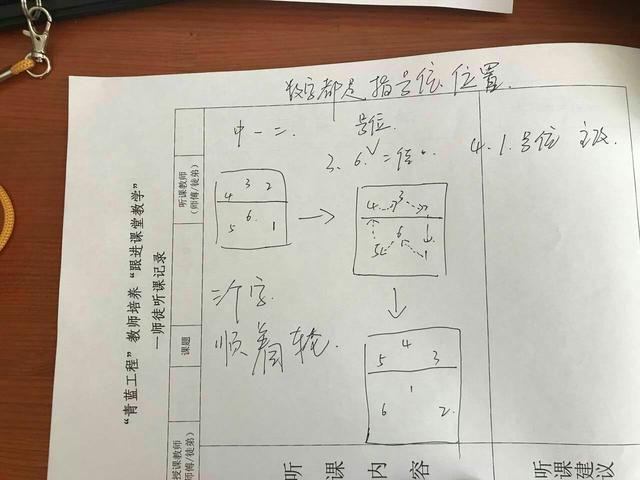 数字都是指号位位置.
中一二. 号位.
3、6.√二传。
4、1.号位 主攻.
3 2
4
6.
5 1
→
4 3
6
5 1
↓
三个字.
顺着轮.
4
5 3
1
6 2.
“青蓝工程”教师培养“跟进课堂教学”
—师徒听课记录
听课教师
（师傅/徒弟）
课题
授课教师
师傅/徒弟）
听 课 内 容
听课建议